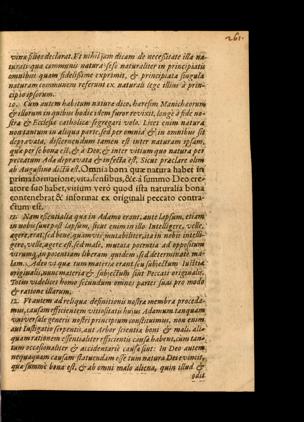 261.
viru sibet declarat. Et nihil jam dicam de necesitate illa na-
turali, qua communis natura sese naturaliter in principiatis
omnibus quam fidelisime exprimit, & principiata singula
naturam communem referunt ex naturali lege illius à prin-
cipio insersam.
10. Cum autem habitum natura dico, heresim Manichaorum
& illorum in quibus hodie idem furor revixit, longè à fide no-
stra & Ecclesia catholica segregari volo. Licet enim natura
non tantum in aliqua parte, sed per omnia & in omnibus sit
depravata, discernendum tamen est inter naturam ipsam,
quæ per se bona est, & à Deo, & inter vitium quo natura per
peccatum Ada depravata & infecta est. Sicut præclarè olim
ab Augustino dictum est. Omnia bona quæ natura habet in
prima formatione, vita, sensibus, &c. à summo Deo cre-
atore suo habet, vitium verò quod ista naturalia bona
contenebrat & infirmat ex originali peccato contra-
ctum est.
11. Nam essentialia qua in Adamo erant, ante lapsum, etiam
in nobis sunt post lapsum, sicut enim in illo Intelligere, velle,
agere, erat, sed benè, quàm vis mutabiliter, ita in nobis intelli-
gere, velle, agere est, sed malè, mutata potentia ad oppositum
utrumq; in potentiam liberam quidem sed determinatè ma-
lam. Adeo ut qua tum materia erant seu subjectum Iustitia
originalis, nunc materia & subjectum sint Peccati originalis.
Totum videlicet homo secundum omnes partes suas pro modo
& ratione illarum.
12. Ut autem ad reliqua definitionis nostra membra proceda-
mus, causam efficientem vitiositatis hujus Adamum tanquam
universale generis nostri principium constituimus, non enim
aut Instigatio serpentis, aut Arbor scientia boni & mali, ali-
quam rationem essentialiter efficientis causa habent, cum tan-
tum occasionaliter & accidentariè causa sint: In Deo autem
nequaquam causam statuendam esse tum natura Dei evincit,
qua summè bona est, & ab omni malo aliena, quin illud &
odit